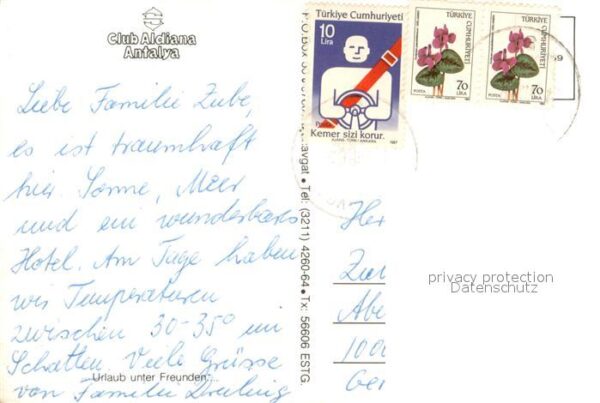 Club Aldiana
Antalya
Liebe Familie Zube,
es ist traumhaft
hier. Sonne, Meer
und ein wunderbares
Hotel. Am Tage haben
wir Temperaturen
zwischen 30-35° im
Schatten. Viele Grüsse
von Familie
"Urlaub unter Freunden"
Tel: (3211) 4260-64 • Tx: 56606 ESTG.
Türkiye Cumhuriyeti
10
Lira
Kemer sizi korur.
1987
TÜRKİYE
CUMHURİYETİ
POSTA
70
LİRA
TÜRKİYE
CUMHURİYETİ
POSTA
70
LİRA
Her
Abe
100
Ger
privacy protection
Datenschutz